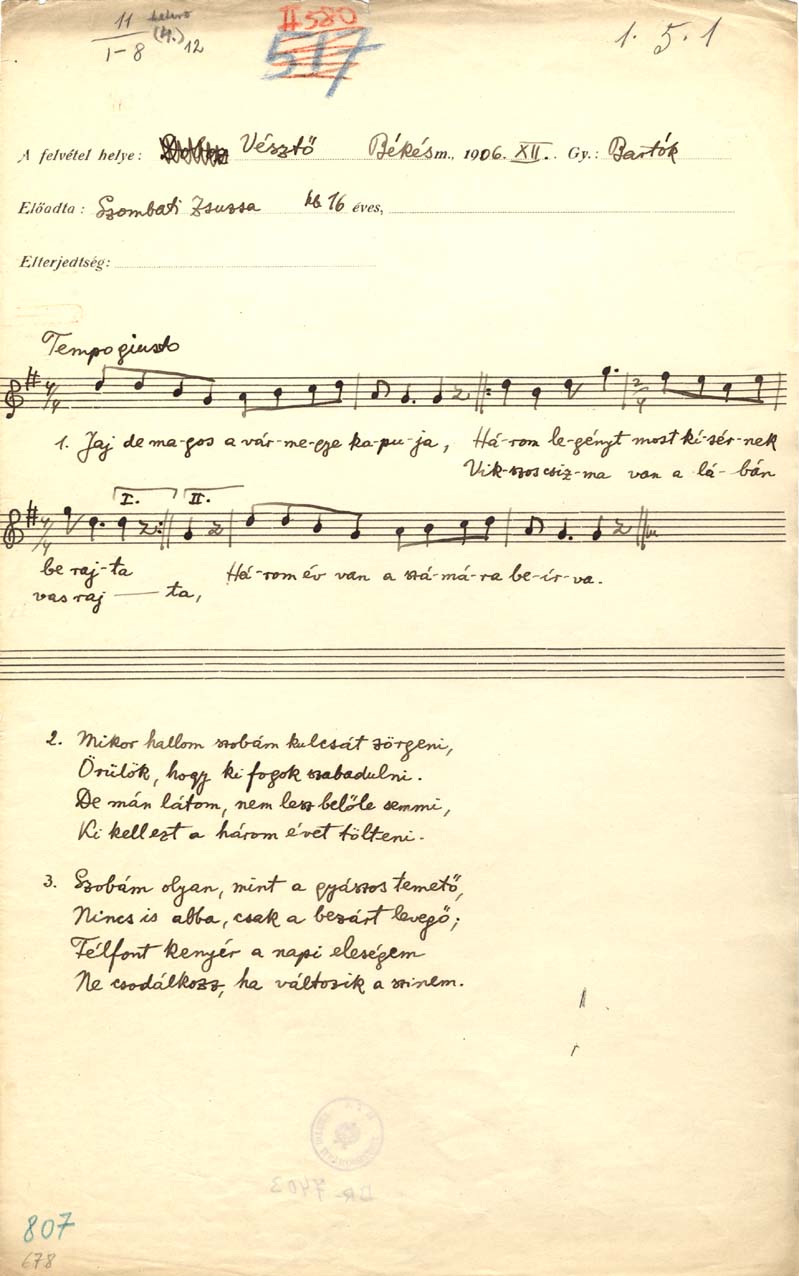 11
1-8 (4.) 12
II 580
517
1. 5. 1
A felvétel helye: Vésztő Békés m., 1906. XII. Gy.: Bartók
Előadta: Szombati Zsuzsa kb 16 éves,
Elterjedtség:
Tempo giusto
1. Jaj de ma-gos a vár-me-gye ka-pu-ja, Há-rom le-gényt most ki-sér-nek
Vik-szos csiz-ma van a lá-bán
I. II.
be raj-ta Há-rom év van a szá-má-ra be-ír-va.
vas raj — ta,
2. Mikor hallom szobám kulcsát zörgeni,
Örülök, hogy ki fogok szabadulni.
De mán látom, nem lesz belőle semmi,
Ki kell ezt a három évet tölteni.
3. Szobám olyan, mint a gyászos temető,
Nincs is abba, csak a bezárt levegő;
Félfont kenyér a napi eleségem
Ne csodálkozz, ha változik a szinem.
BR-7403
807
678